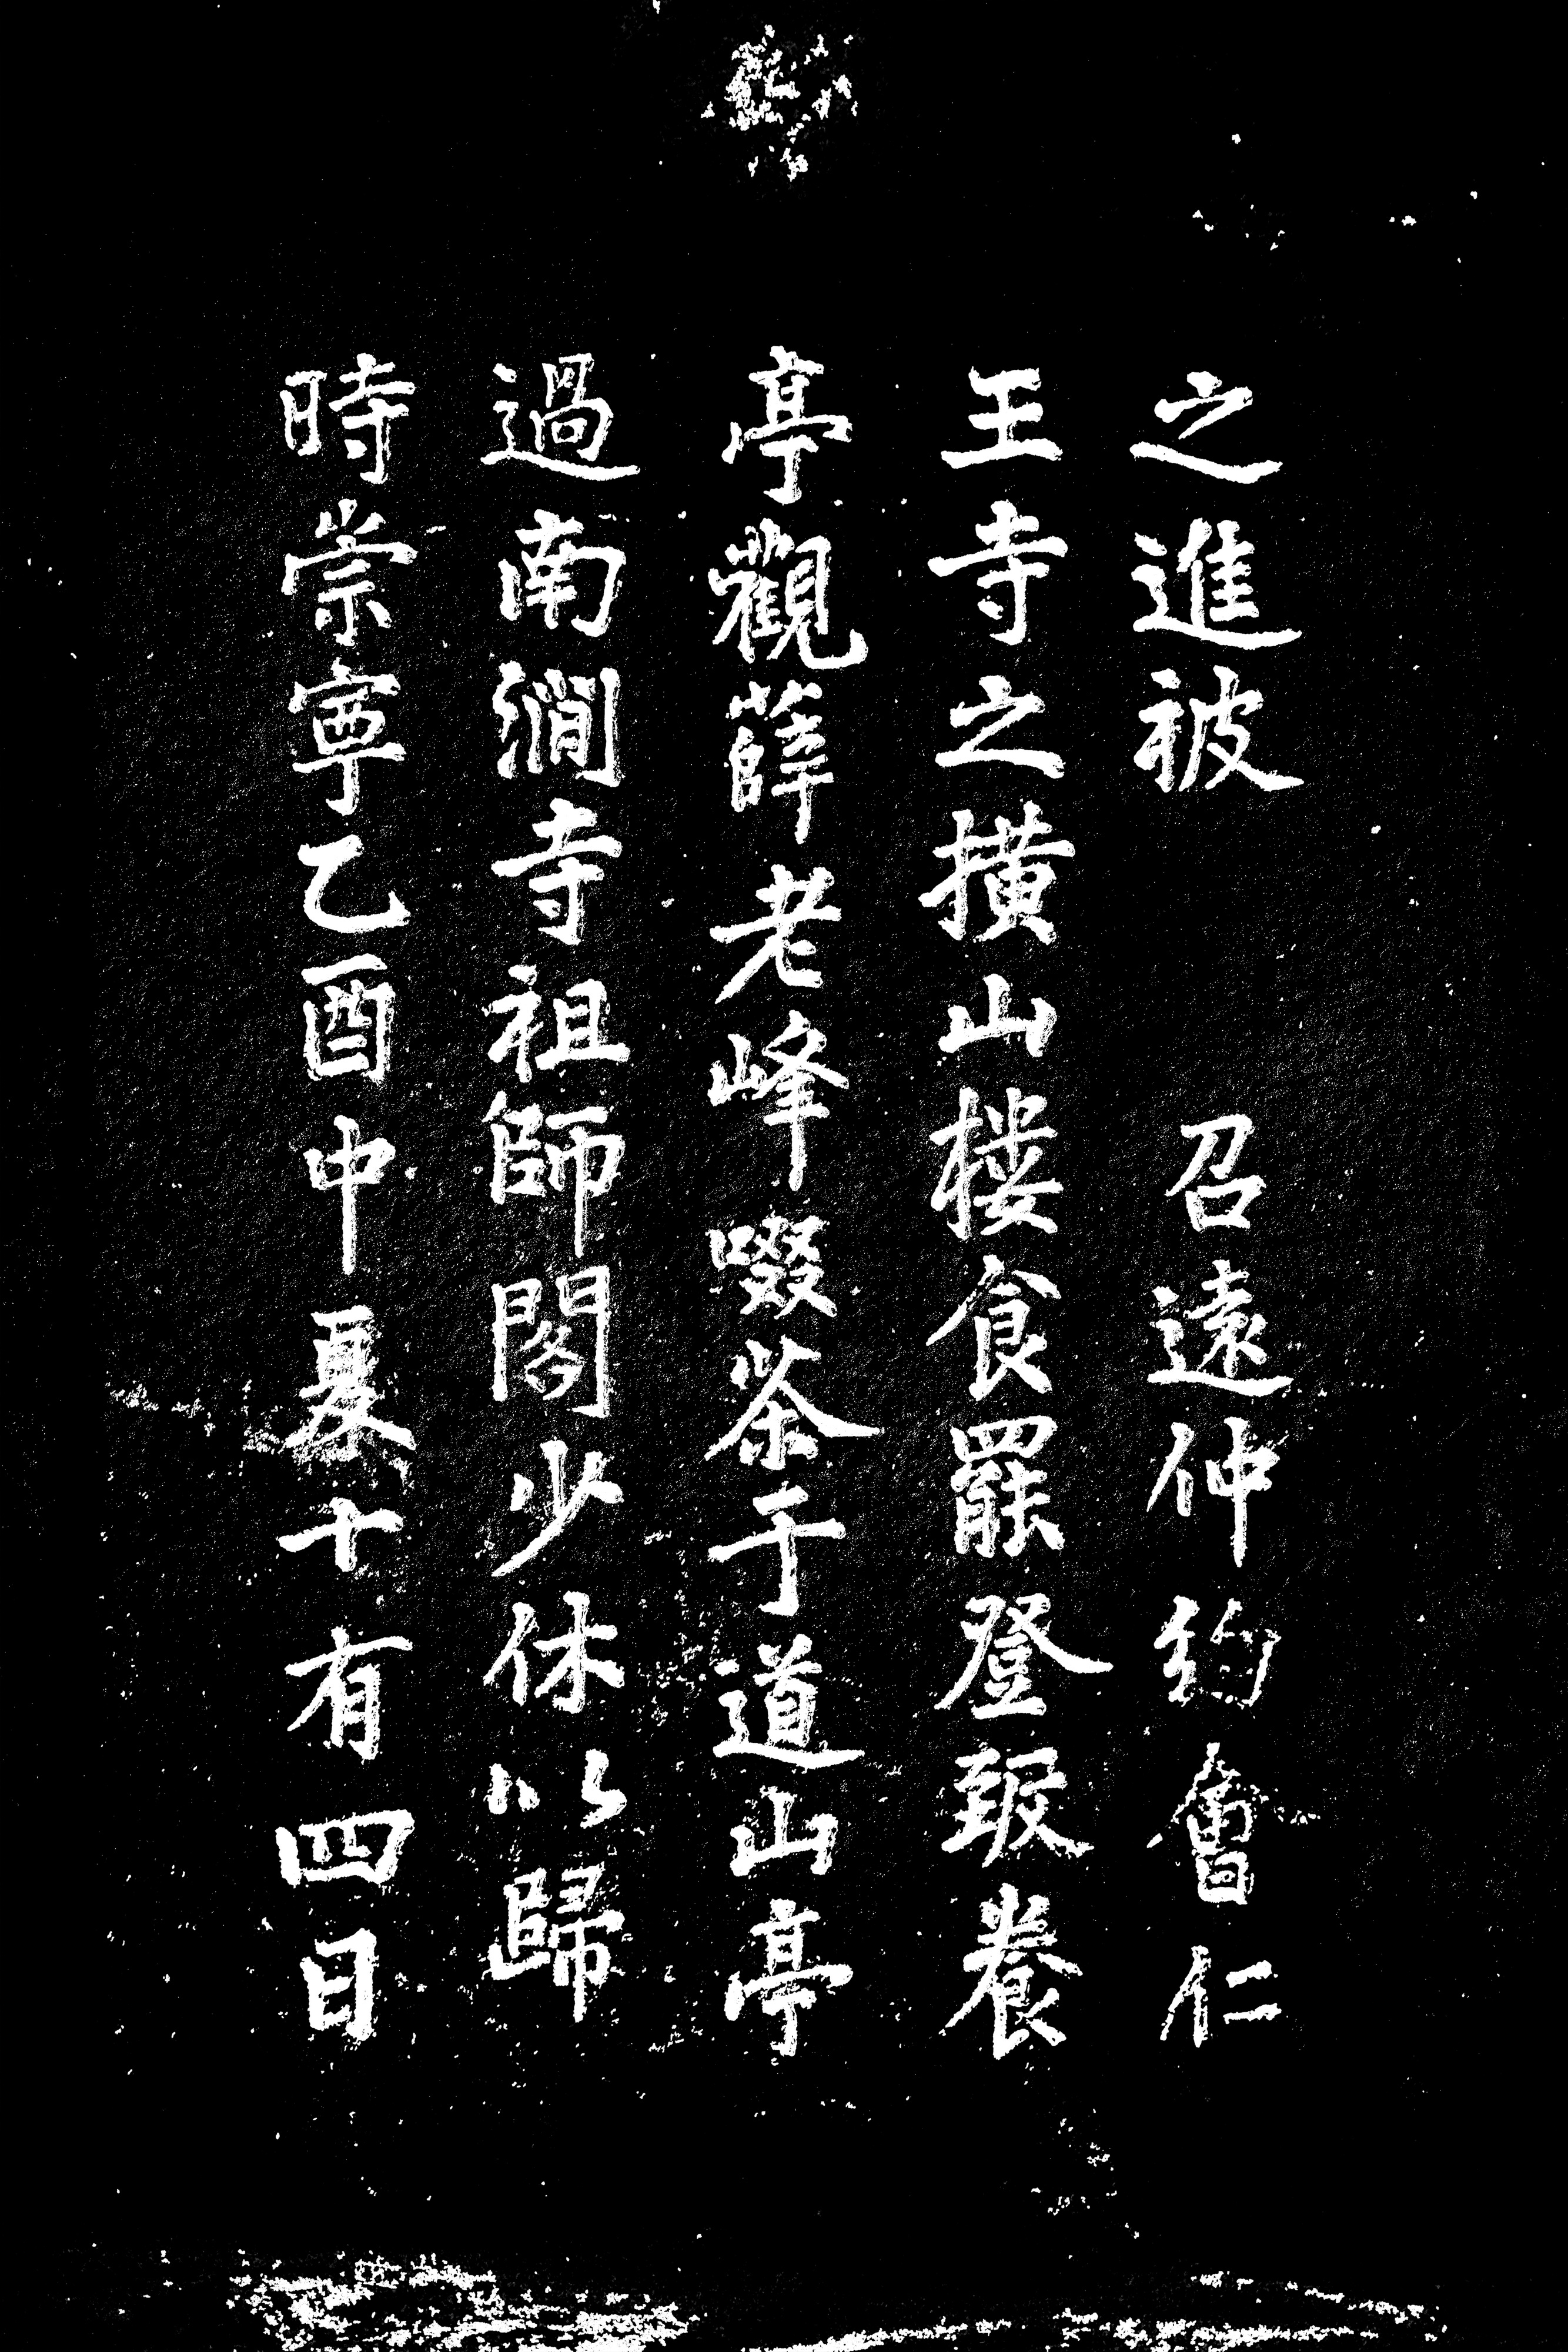 之進被　　召遠仲約會仁
王寺之橫山樓食罷登報養
亭觀薛老峰啜茶于道山亭
過南澗寺祖師閣少休以歸
時崇寧乙酉中夏十有四日